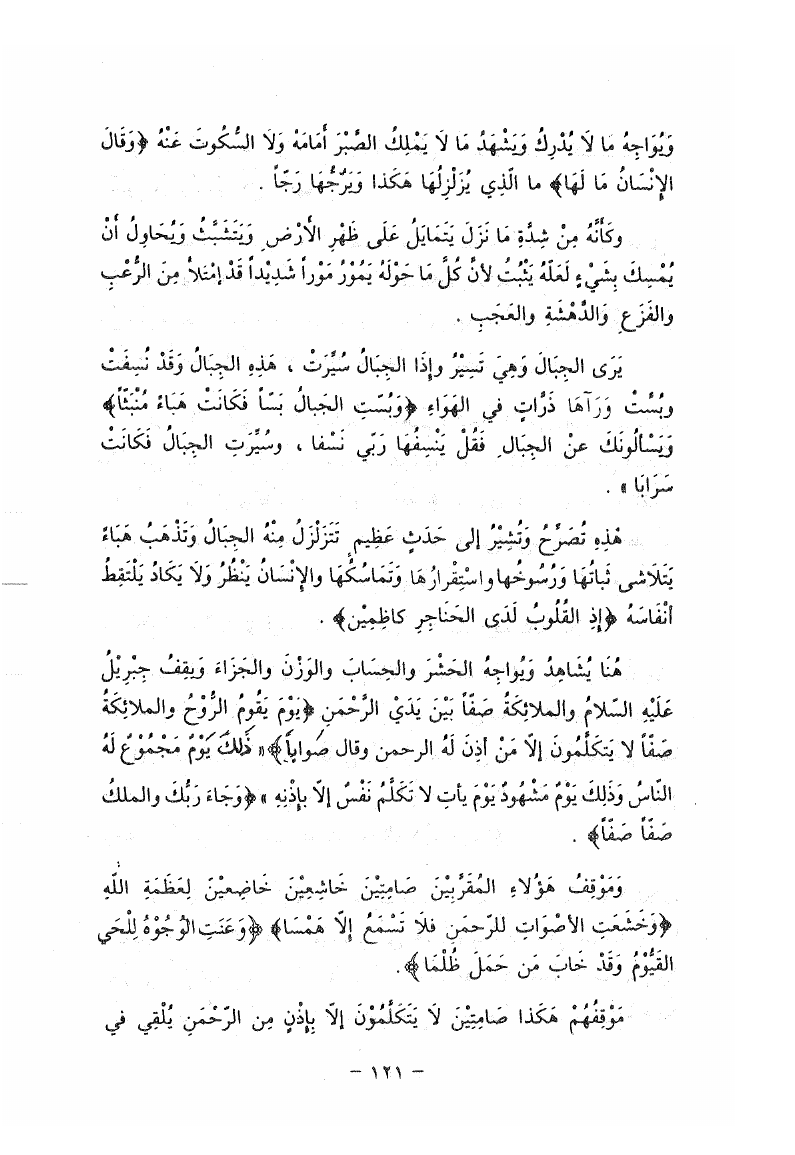 وَيُوَاجِهُ مَا لَا يُدْرِكُ وَيَشْهَدُ مَا لَا يَمْلِكُ الصَّبْرَ أَمَامَهُ وَلَا السُّكُوتَ عَنْهُ ﴿وَقَالَ
الإِنْسَانُ مَا لَهَا﴾ ما الَّذِي يُزَلْزِلُهَا هَكَذا وَيَرُجُّهَا رَجّاً .
وكَأَنَّهُ مِنْ شِدَّةِ مَا نَزَلَ يَتَمَايَلُ عَلَى ظَهْرِ الأَرْضِ وَيَتَشَبَّثُ وَيُحَاوِلُ أَنْ
يُمْسِكَ بِشَيْءٍ لَعَلَّهُ يَثْبُتُ لأَنَّ كُلَّ مَا حَوْلَهُ يَمُوْرُ مَوْراً شَدِيْداً قَدْ إمْتَلأَ مِنَ الرُّعْبِ
والفَزَعِ وَالدَّهْشَةِ والعَجَبِ .
يَرَى الجِبَالَ وَهِيَ تَسِيْرُ وإِذَا الجِبَالُ سُيِّرَتْ ، هَذِهِ الجِبَالُ وَقَدْ نُسِفَتْ
وبُسَّتْ وَرَآهَا ذَرَّاتٍ في الهَوَاءِ ﴿وَبُسَّتِ الجَبالُ بَسّاً فَكَانَتْ هَبَاءً مُنْبَثّاً﴾
وَيَسْأَلُونَكَ عنْ الجِبَالِ فَقُلْ يَنْسِفُهَا رَبّي نَسْفا ، وسُيِّرَتِ الجِبَالُ فَكَانَتْ
سَرَابَا » .
هَذِهِ تُصَرِّحُ وَتُشِيْرُ إلى حَدَثٍ عَظِيمٍ تَتَزَلْزَلُ مِنْهُ الجِبَالُ وَتَذْهَبُ هَبَاءً
يَتَلَاشى ثَباتُهَا وَرُسُوخُها واسْتِقْرارُهَا وَتَمَاسُكُهَا والإِنْسَانُ يَنْظُرُ وَلَا يَكَادُ يَلْتَقِطُ
أَنْفَاسَهُ ﴿إذِ القُلُوبُ لَدَى الحَنَاجِرِ كاظِمِيْن﴾ .
هُنَا يُشَاهِدُ وَيُواجِهُ الحَشْرَ والحِسَابَ والوَزْنَ والجَزَاءَ وَيقِفُ جِبْرِيْلُ
عَلَيْهِ السّلامُ والملائِكَةُ صَفّاً بَيْنَ يَدَيْ الرَّحْمَنِ ﴿يَوْمَ يَقُومُ الرُّوْحُ والملائِكَةُ
صَفّاً لا يَتَكَلَّمُونَ إلّا مَنْ أَذِنَ لَهُ الرحمن وقال صَواباً﴾ « ذَلِكَ يَوْمٌ مَجْمُوْعٌ لَهُ
النّاسُ وَذَلِكَ يَوْمٌ مَشْهُودٌ يَوْمَ يأتِ لا تَكَلَّمُ نَفْسٌ إلّا بإِذْنِهِ » ﴿وَجَاءَ رَبُّكَ والملكُ
صَفّاً صَفّاً﴾ .
وَمَوْقِفُ هَؤُلاءِ المُقَرَّبِيْنَ صَامِتِيْنَ خَاشِعِيْنَ خَاضِعِيْنَ لِعَظَمَةِ اللَّهِ
﴿وَخَشَعَتِ الأَصْوَاتِ للرّحمنِ فلَا تَسْمَعُ إلّا هَمْسَا﴾ ﴿وَعَنَتِ الوُجُوْهُ لِلْحَي
القَيُّوْمُ وَقَدْ خَابَ مَن حَمَلَ ظُلْمَا﴾.
مَوْقِفُهُمْ هَكَذا صَامِتِيْنَ لَا يَتَكَلَّمُوْنَ إلّا بِإِذْنٍ مِن الرَّحْمَنِ يُلْقِي في
– ١٢١ –